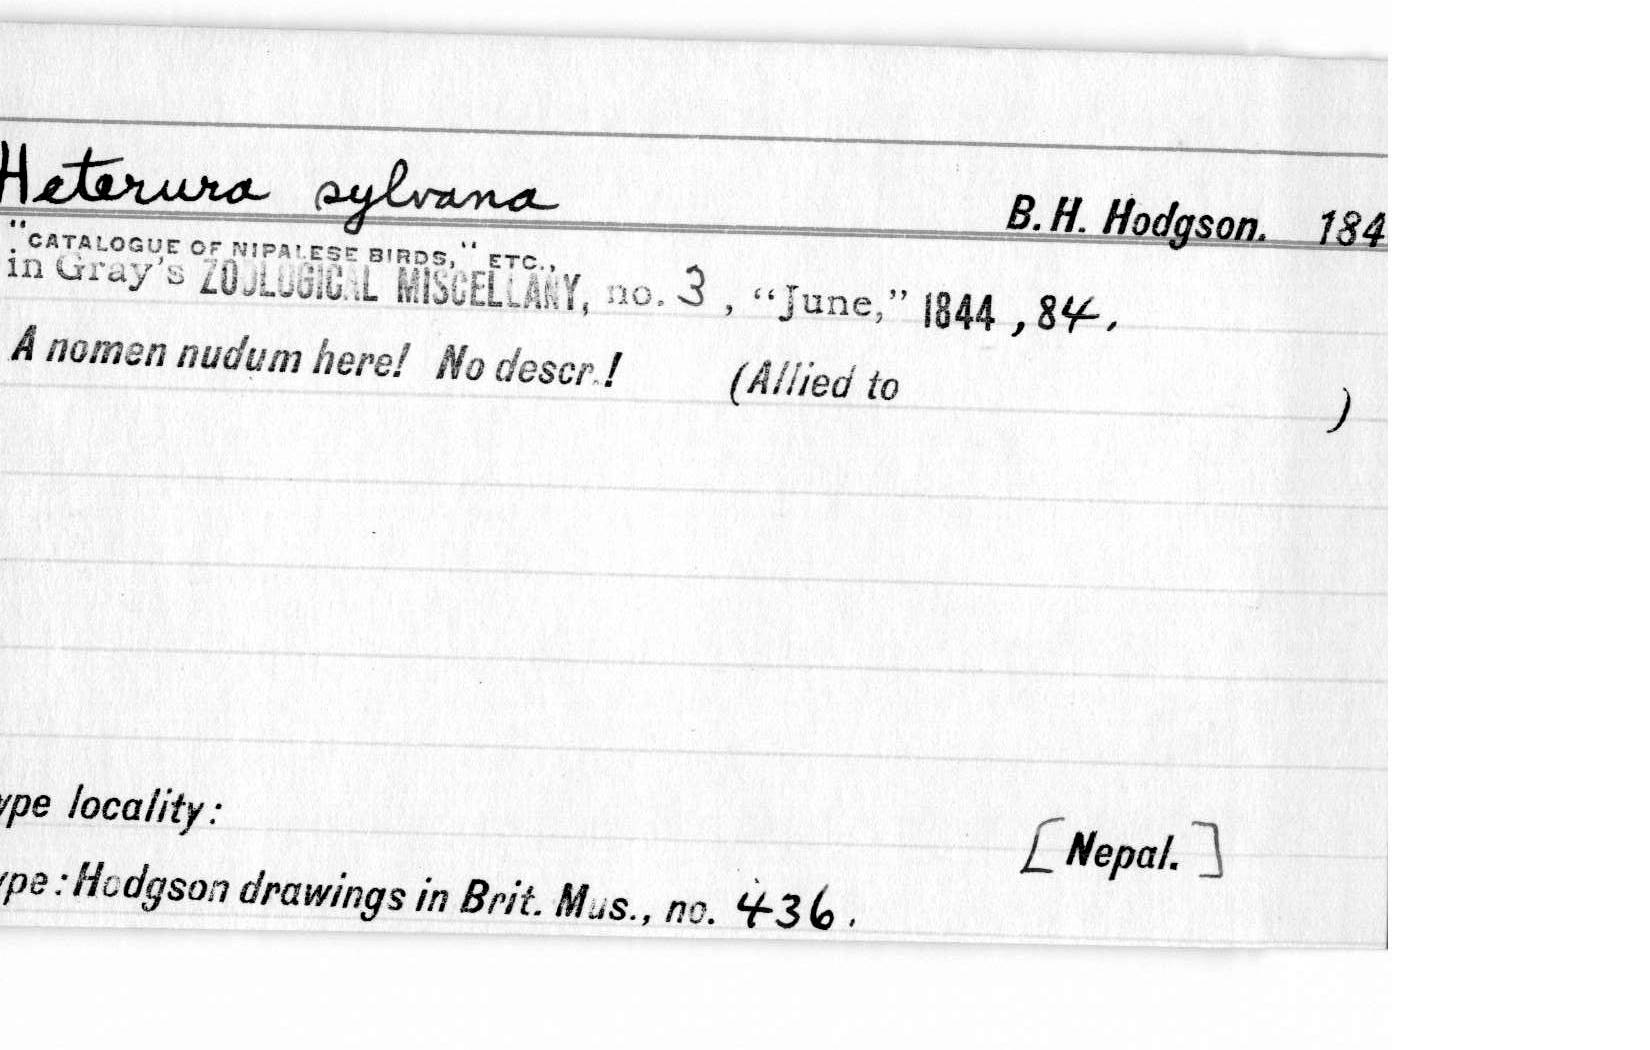 Heterura sylvana B. H. Hodgson. 184
"CATALOGUE OF NIPALESE BIRDS," ETC.,
in Gray's ZOOLOGICAL MISCELLANY, no. 3, "June," 1844, 84.
A nomen nudum here! No descr.! (Allied to )
ype locality: [Nepal.]
ype: Hodgson drawings in Brit. Mus., no. 436.